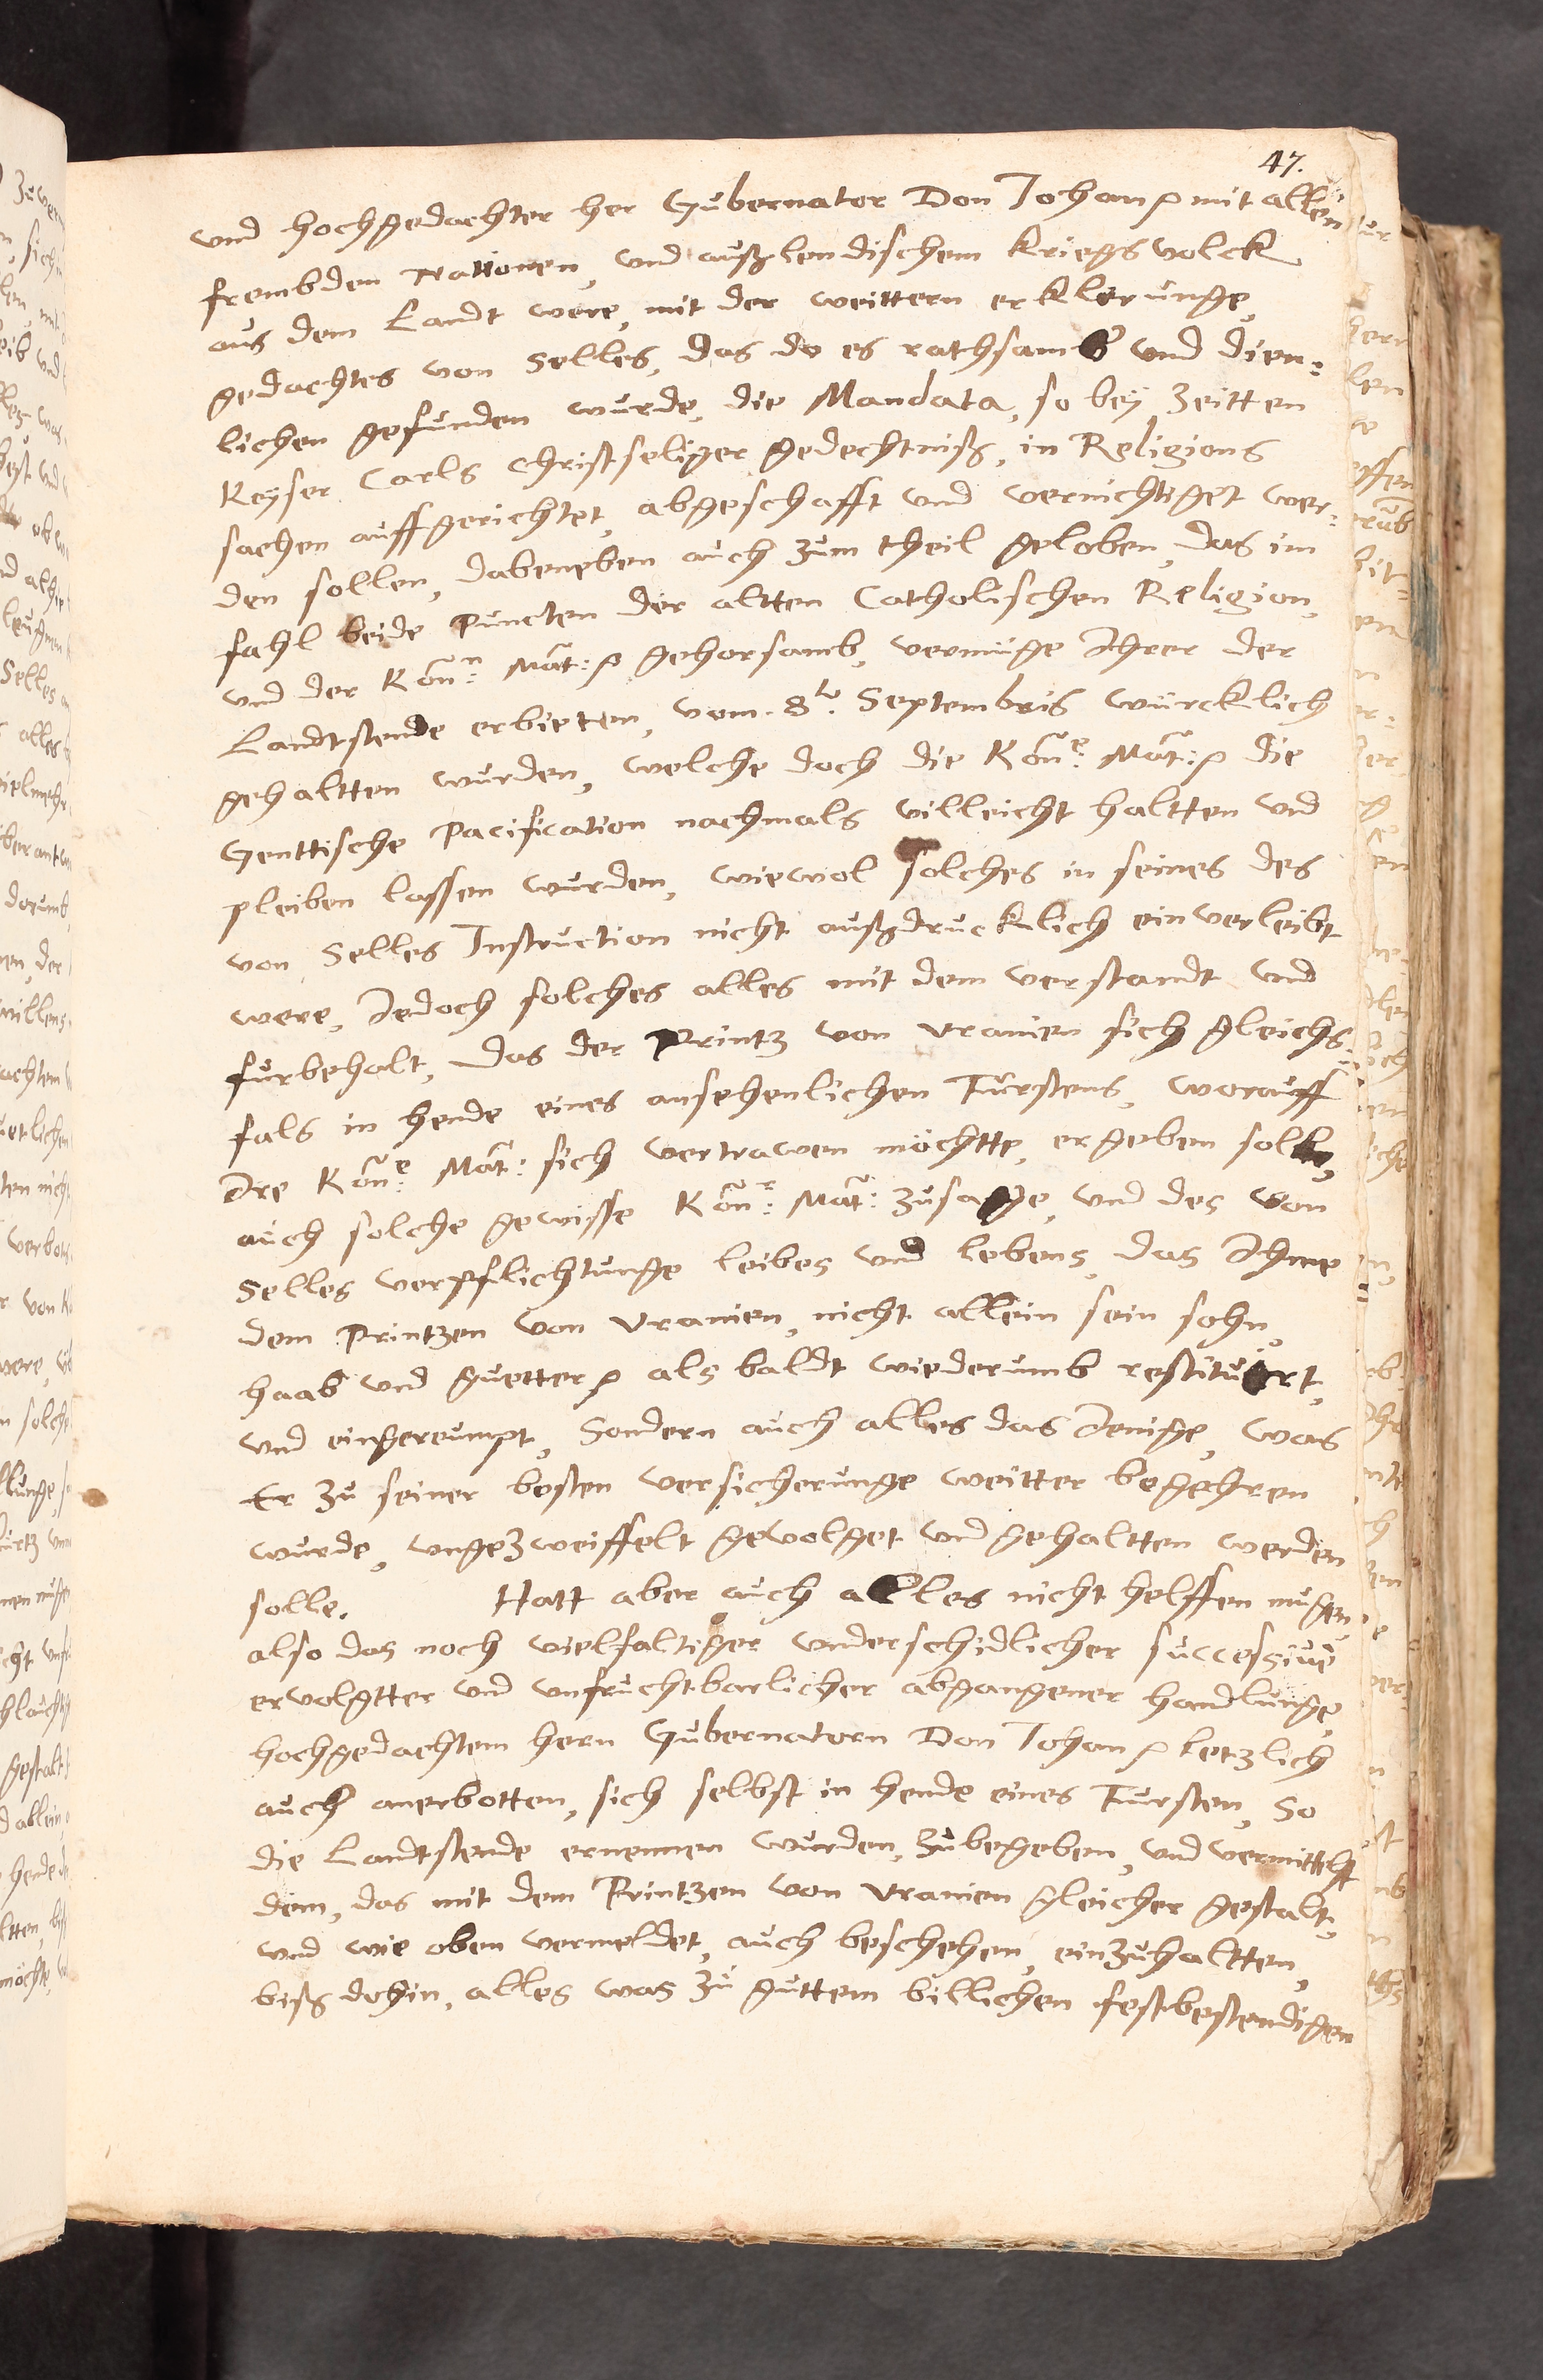 47.
vnd hochgedachter her Gubernator Don Johan ꝛ mit allen
frembden Nationen, vnd außlendischem Kriegsvolck
aus dem Landt were, mit der weittern erklerunge,
gedachtes von Selles, das do es rathsamb vnd dien:
lichen gefunden wurde, die Mandata, so bey Zeitten
Keyser Carls Christseliger gedechtniß, in Religions
sachen auffgerichtet, abgeschafft vnd vernichtiget wer:
den sollen, dabeneben auch zum theil geloben, das im
fahl beide Puncten der altten Catholischen Religion,
vnd der Kön:n Mat: ꝛ gehorsamb, vermüge Ihrer der
Landtstende erbieten, vom 8ten Septembris würcklich
gehaltten wurden, welche doch die Kön:e Mat: ꝛ die
Genttische Pacification nachmals villeicht haltten vnd
pleiben lassen wurden, wiewol solches in seines des
von Selles Instruction nicht außdrucklich einverleibt
were, Jedoch solches alles mit dem verstandt vnd
furbehalt, das der Printz von Vranien sich gleichs:
fals in hende eines ansehenlichen Fursten, worauff
Ire Kön:e Mat: sich vertrawen möchtte, ergeben solle,
auch solche gewisse Kön:r Mat: zusage, vnd des von
Selles verpflichtunge leibes vnd lebens, das Ihme
dem Printzen von Vranien, nicht allein sein sohn,
haab vnd guetter ꝛ als baldt wiederumb restituirt,
vnd eingereumpt, Sondern auch alles das Jenige, was
Er zu seiner besten versicherunge weitter begehren
wurde, vngezweiffelt gevolget vnd gehaltten werden
solle. Hatt aber auch alles nicht helffen mugen,
also das noch vielfaltiger vnderschidlicher successive
ervolgtter vnd vnfruchtbarlicher abgangener handlunge,
hochgedachtem hern Gubernatorn Don Johan ꝛ letzlich
auch anerbotten, sich selbst in hende eines Fursten, So
die Landtstende ernennen wurden, zubegeben, vnd vermittelst
dem, das mit dem Printzen von Vranien gleicher gestalt,
vnd wie oben vermeldet, auch beschehen, einzuhaltten,
biß dohin, alles was zu guttem billichen festbestendigen